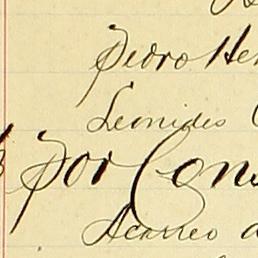 Pedro Her
Leonides
Por Cons
Acarreo d